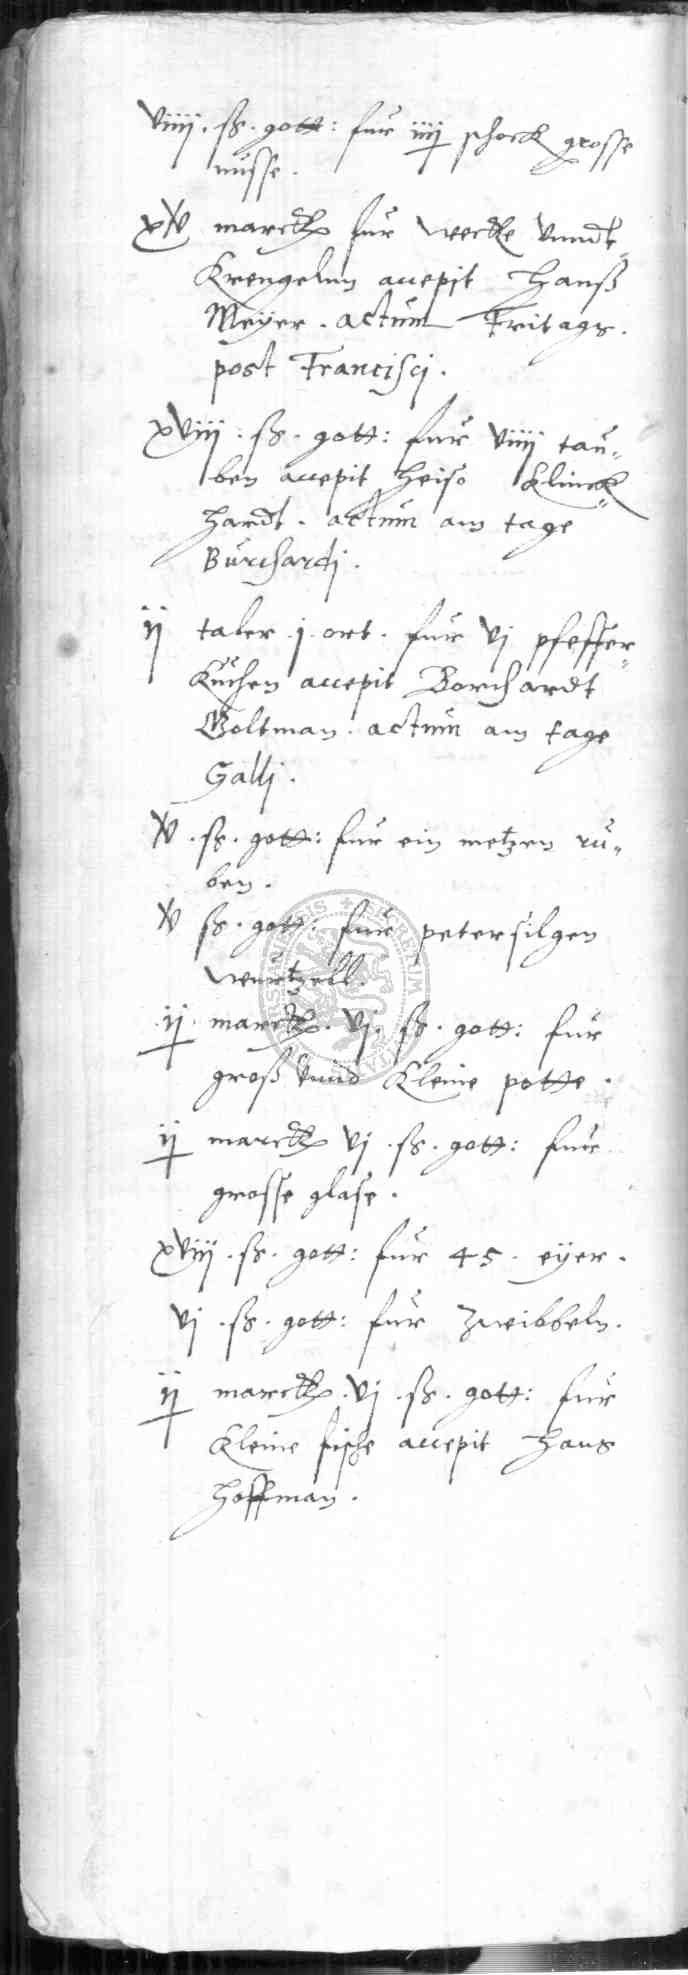 viiii. ß. gott: fur iiij schock grosse
nusse.
xv marck fur wecke vnndt
Krengelnn accepit Hanß
Meÿer. actum Fritags.
post Francisci.
xviij. ß. gott: fur viiij tau„
ben accepit Heiso Klinck„
hardt. actum am tage
Burchardi.
ij taler .j. ort. fur vj pfeffer„
Kuchen accepit Borchardt
Woltman. actum am tage
Galli.
v. ß. gott: fur ein metzen ru„
ben.
v ß. gott: fur petersilgen
wurtzell.
ij. marck. vj. ß. gott: fur
groß vnnd Kleine potte.
ij marck vj .ß. gott: fur
grosse glase.
xviij .ß. gott: fur 45. eÿer.
vj .ß. gott: fur zweibbeln.
ij marck. vj .ß. gott: fur
Kleine fische accepit Hans
Hoffman.